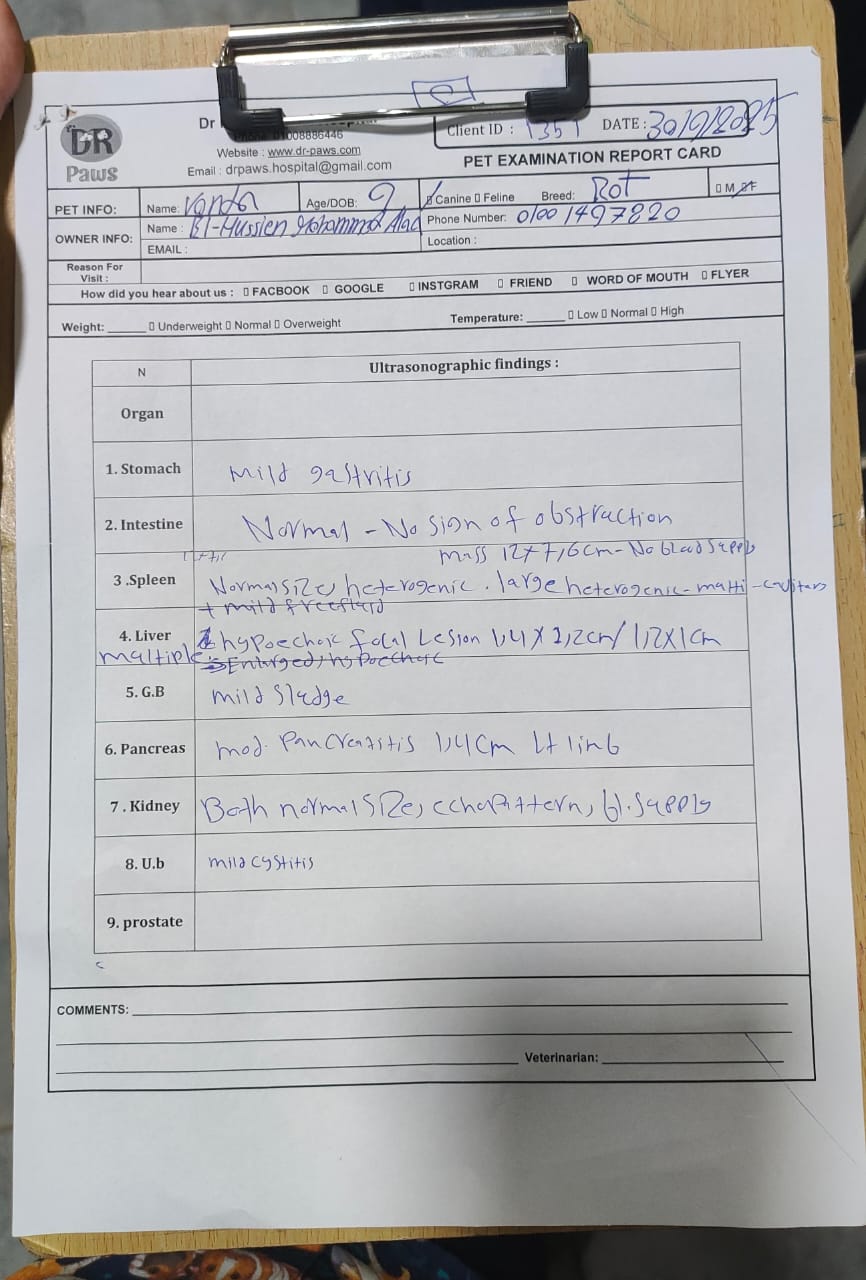 DR
Paws
Dr
008886446
Website : www.dr-paws.com
Email : drpaws.hospital@gmail.com
Client ID : 1351 DATE: 30/9/2025
PET EXAMINATION REPORT CARD
PET INFO: Name: Age/DOB: 9 Canine Feline Breed: Rot M F
OWNER INFO: Name : El-Hussien Mohammed Phone Number: 01001497820
EMAIL : Location :
Reason For
Visit :
How did you hear about us : FACBOOK GOOGLE INSTGRAM FRIEND WORD OF MOUTH FLYER
Weight: ______ Underweight Normal Overweight Temperature: ______ Low Normal High
N Ultrasonographic findings :
Organ
1. Stomach Mild gastritis
2. Intestine Normal - No sign of obstraction
mass 12x7,6cm - No blood supply
3 .Spleen Normal size, heterogenic. large heterogenic - multi -
+ mild free fluid
4. Liver hypoechoic focal Lesion 1,4 x 2,2cm / 1,2x1cm
multiple Enlarged, hypoechoic
5. G.B mild sludge
6. Pancreas mod. Pancreatitis 1,4cm Lt limb
7 . Kidney Both normal size, echopattern, bl. supply
8. U.b mild cystitis
9. prostate
COMMENTS:
Veterinarian: